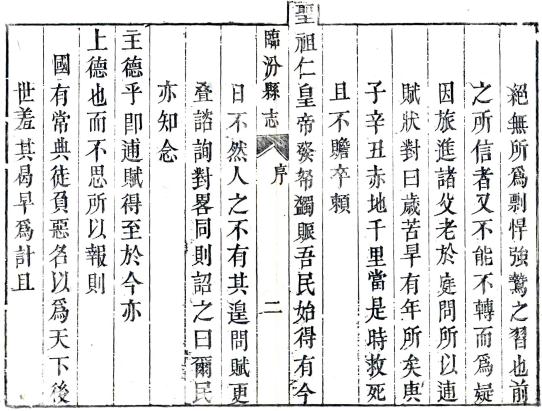 絕無所爲剽悍強鷙之習也前
之所信者又不能不轉而爲疑
因旅進諸父老於庭問所以逋
賦狀對曰歲苦旱有年所矣庚
子辛丑赤地千里當是時救死
且不贍卒賴
聖祖仁皇帝發帑蠲賑吾民始得有今
臨汾縣志 序 二
日不然人之不有其遑問賦更
叠諮詢對畧同則詔之曰爾民
亦知念
主德乎卽逋賦得至於今亦
上德也而不思所以報則
國有常典徒負惡名以爲天下後
世羞其曷早爲計且